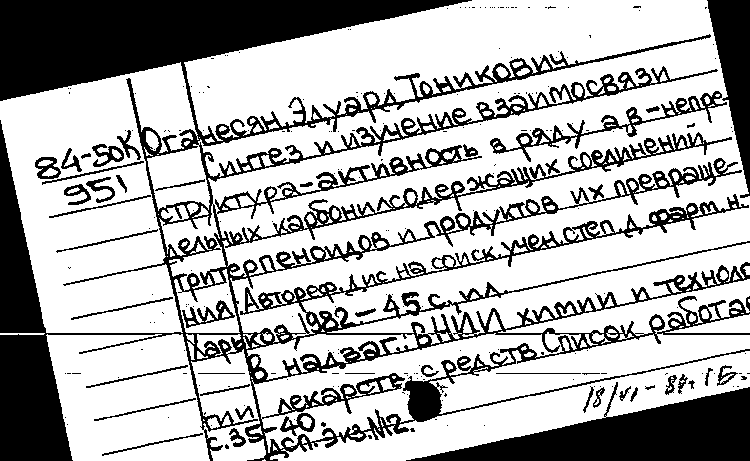 84-50К
951
Оганесян, Эдуард Тоникович.
Синтез и изучение взаимосвязи
структура-активность в ряду а,в-непре-
дельных карбонилсодержащих соединений,
тритерпеноидов и продуктов их превраще-
ния. Автореф. дис. на соиск. учен. степ. д. фарм. н-
Харьков, 1982 – 45 с., ил.
В надзаг.: ВНИИ химии и техноло
гии лекарств. средств. Список работ
с. 35-40.
ДСП. Экз. №2.
18/VI - 84г.